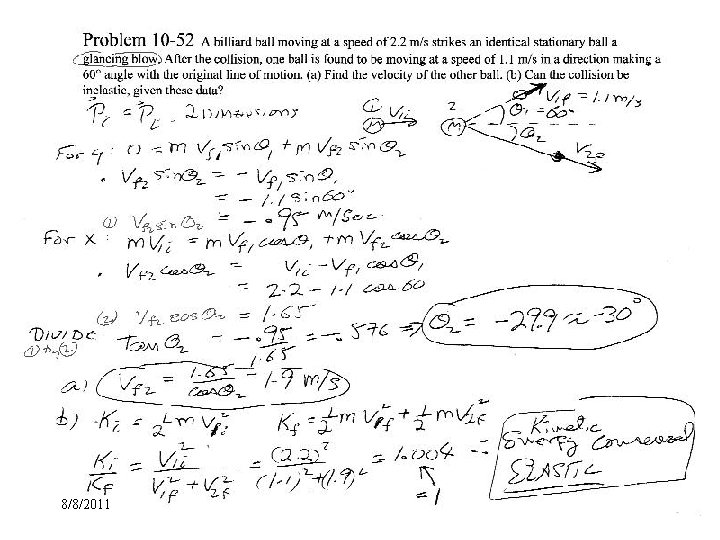 Problem 10-52 A billiard ball moving at a speed of 2.2 m/s strikes an identical stationary ball a
glancing blow. After the collision, one ball is found to be moving at a speed of 1.1 m/s in a direction making a
60° angle with the original line of motion. (a) Find the velocity of the other ball. (b) Can the collision be
inelastic, given these data?
V1f = 1.1 m/s
1 V1i 2 θ1 = 60°
M M θ2
V2f
2 Dimensions
For y: 0 = m Vf1 sinθ1 + m Vf2 sinθ2
• Vf2 sinθ2 = - Vf1 sinθ1
= - 1.1 sin60°
(1) Vf2 sinθ2 = - .95 m/sec
For x: mV1i = m Vf1 cosθ1 + m Vf2 cosθ2
• Vf2 cosθ2 = V1i - Vf1 cosθ1
= 2.2 - 1.1 cos 60
(2) Vf2 cosθ2 = 1.65
DIVIDE
(1) by (2) Tan θ2 = - .95/1.65 = - .576 ⇒ θ2 = -29.9 ≈ -30°
a) Vf2 = 1.65/cosθ2 = 1.9 m/s
b) Ki = 1/2 m V1i² Kf = 1/2 m V1f² + 1/2 m V2f²
Ki/Kf = V1i²/(V1f² + V2f²) = (2.2)²/((1.1)² + (1.9)²) = 1.004
≈ 1
∴ Kinetic
Energy conserved
ELASTIC
8/8/2011